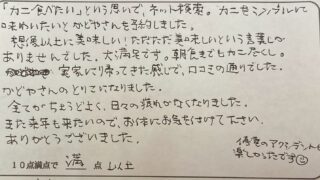 「カニ食べたい」という思いで、ネット検索。カニをシンプルに
味わいたいとかどやさんを予約しました。
想像以上に美味しい！ただただ美味しいという言葉しか
ありませんでした。大満足です。朝食までもカニ尽くし。
実家に帰ってきた感じで、口コミの通りでした。
かどやさんのとりこになりました。
全てがちょうどよく、日々の疲れがなくなりました。
また来年も来たいので、お体にお気をつけて下さい。
ありがとうございました。
停電のアクシデントも
楽しかったです
10点満点で 満 点 以上